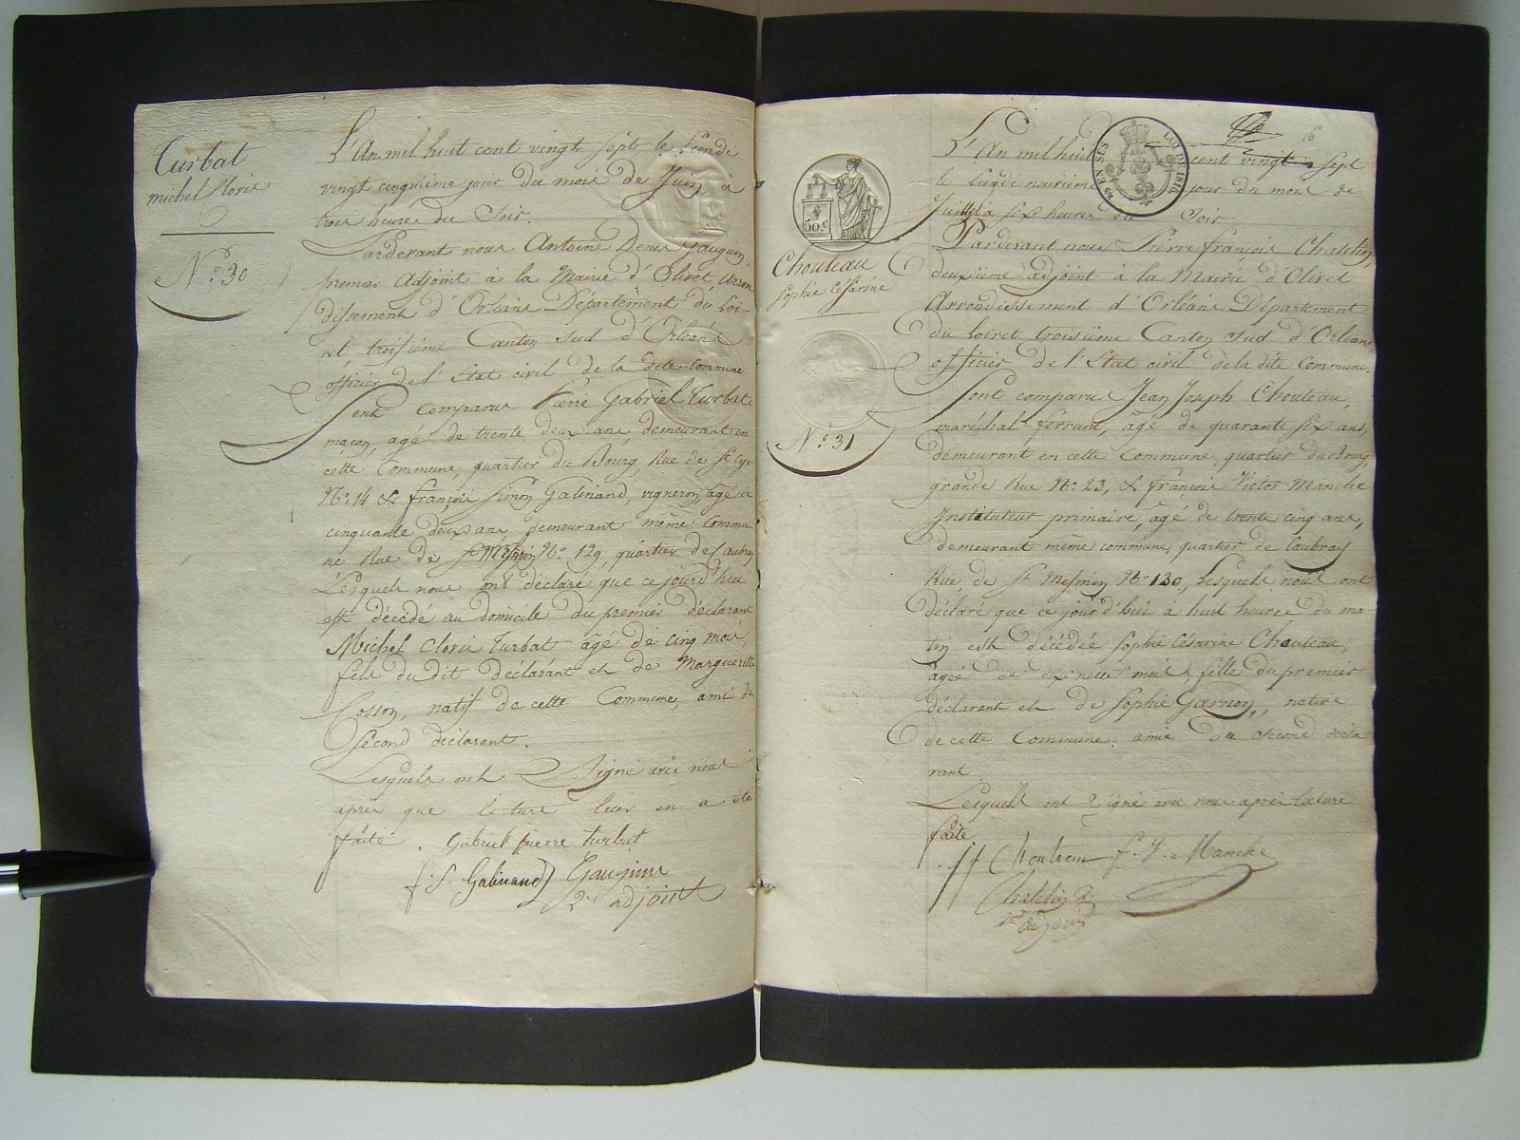 Turbat
michel Cloris
N.° 30
L'An mil huit cent vingt sept le Lundi
vingt cinquième jour du mois de Juin à
trois heures du Soir.
Pardevant nous Antoine Denis Gauguin
premier adjoint à la Mairie d'Olivet, Arron
dissement d'Orléans Département du Loi-
ret, troisième Canton Sud d'Orléans
officier de l'état civil de la dite Commune
Sont comparus Pierre Gabriel Turbat
maçon, agé de trente deux ans, demeurant en
cette Commune, quartier du Bourg, Rue de St Cyr
N.° 14 & françois Simon Gabinaud, vigneron, agé de
cinquante deux ans, demeurant même Commu
ne Rue de St Mesmin N.° 129, quartier de Caubray
Lesquels nous ont déclaré que ce jourd'hui
est décédé au domicile du premier déclarant
Michel Cloris Turbat âgé de cinq mois,
fils du dit déclarant et de Marguerite
Cosson, natif de cette Commune, ami du
Second déclarent.
Lesquels ont Signé avec nous
après que lecture leur en a été
faite. Gabriel pierre turbat
f. S. Gabinaud Gauguin
adjoint
Chouteau
Sophie Césarine
N.° 31
L'An mil huit cent vingt sept
le jour du mois de
Juillet à six heures du Soir
Pardevant nous Pierre françois Chatelin,
deuxième adjoint à la Mairie d'Olivet
Arrondissement d'Orléans Département
du Loiret troisième Canton Sud d'Orléans
officier de l'état civil de la dite Commune.
Sont comparu Jean Joseph Chouteau,
maréchal ferrant, âgé de quarante six ans,
demeurant en cette Commune quartier du Bourg
grande Rue N.° 23, & françois Victor Manche
Instituteur primaire, âgé de trente cinq ans,
demeurant même commune, quartier de Caubray
Rue de St Mesmin N.° 130, Lesquels nous ont
déclaré que ce jour d'hui à huit heures du ma-
tin est décédée Sophie Césarine Chouteau,
âgée de dix neuf mois fille du premier
déclarent et de Sophie Garnier, native
de cette Commune. amie du second décla
rant.
Lesquels ont Signé avec nous après lecture
faite
Chouteau f. V. Manche
Chatelin
adjoint